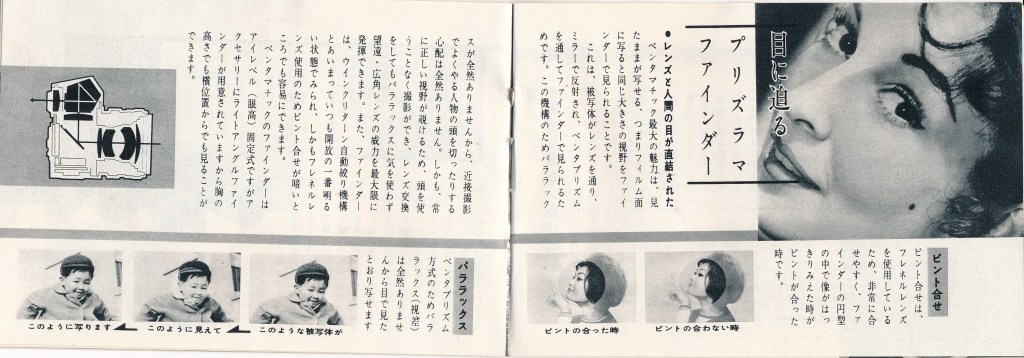 目に迫る
プリズラマ
ファインダー
●レンズと人間の目が直結された
ペンタマチック最大の魅力は、見
たままが写せる、つまりフィルム面
に写ると同じ大きさの視野をファイ
ンダーで見られることです。
これは、被写体がレンズを通り、
ミラーで反射され、ペンタプリズム
を通してファインダーで見られるた
めです。この機構のためパララック
スが全然ありませんから、近接撮影
でよくやる人物の頭を切ったりする
心配は全然ありません。しかも、常
に正しい視野が覗けるため、頭を使
うことなく撮影ができ、レンズ交換
をしてもパララックスに気を使わず
望遠・広角レンズの威力を最大限に
発揮できます。また、ファインダー
は、ウインクリターン自動絞り機構
とあいまっていつも開放の一番明る
い状態でみられ、しかもフレネルレ
ンズ使用のためピント合せが暗いと
ころでも容易にできます。
ペンタマチックのファインダーは
アイレベル（眼高）固定式ですがア
クセサリーにライトアングルファイ
ンダーが用意されていますから胸の
高さでも横位置からでも見ることが
できます。
ピント合せ
ピント合せは、
フレネルレンズ
を使用している
ため、非常に合
せやすく、ファ
インダーの円型
の中で像がはっ
きりみえた時が
ピントが合った
時です。
ピントの合わない時
ピントの合った時
パララックス
ペンタプリズム
方式のためパラ
ラックス（視差）
は全然ありませ
んから目で見た
とおり写せます
このような被写体が
このように見えて
このように写ります